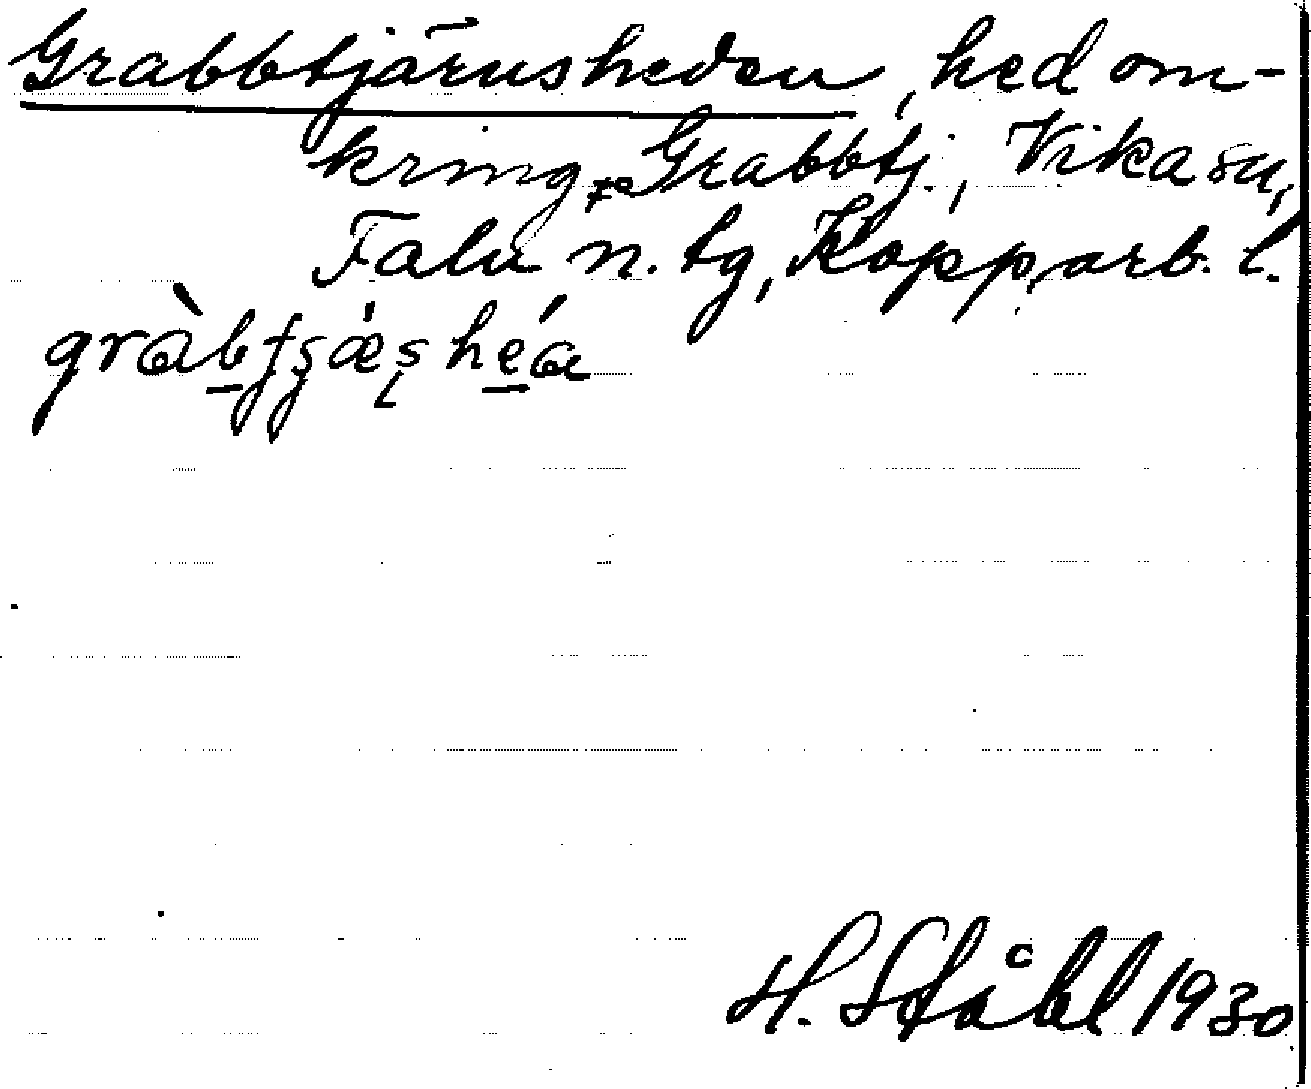 Grabbtjärnsheden, hed om-
kring Grabbtj., Vika sn,
Falu n. tg, Kopparb. l.
H. Ståhl 1930